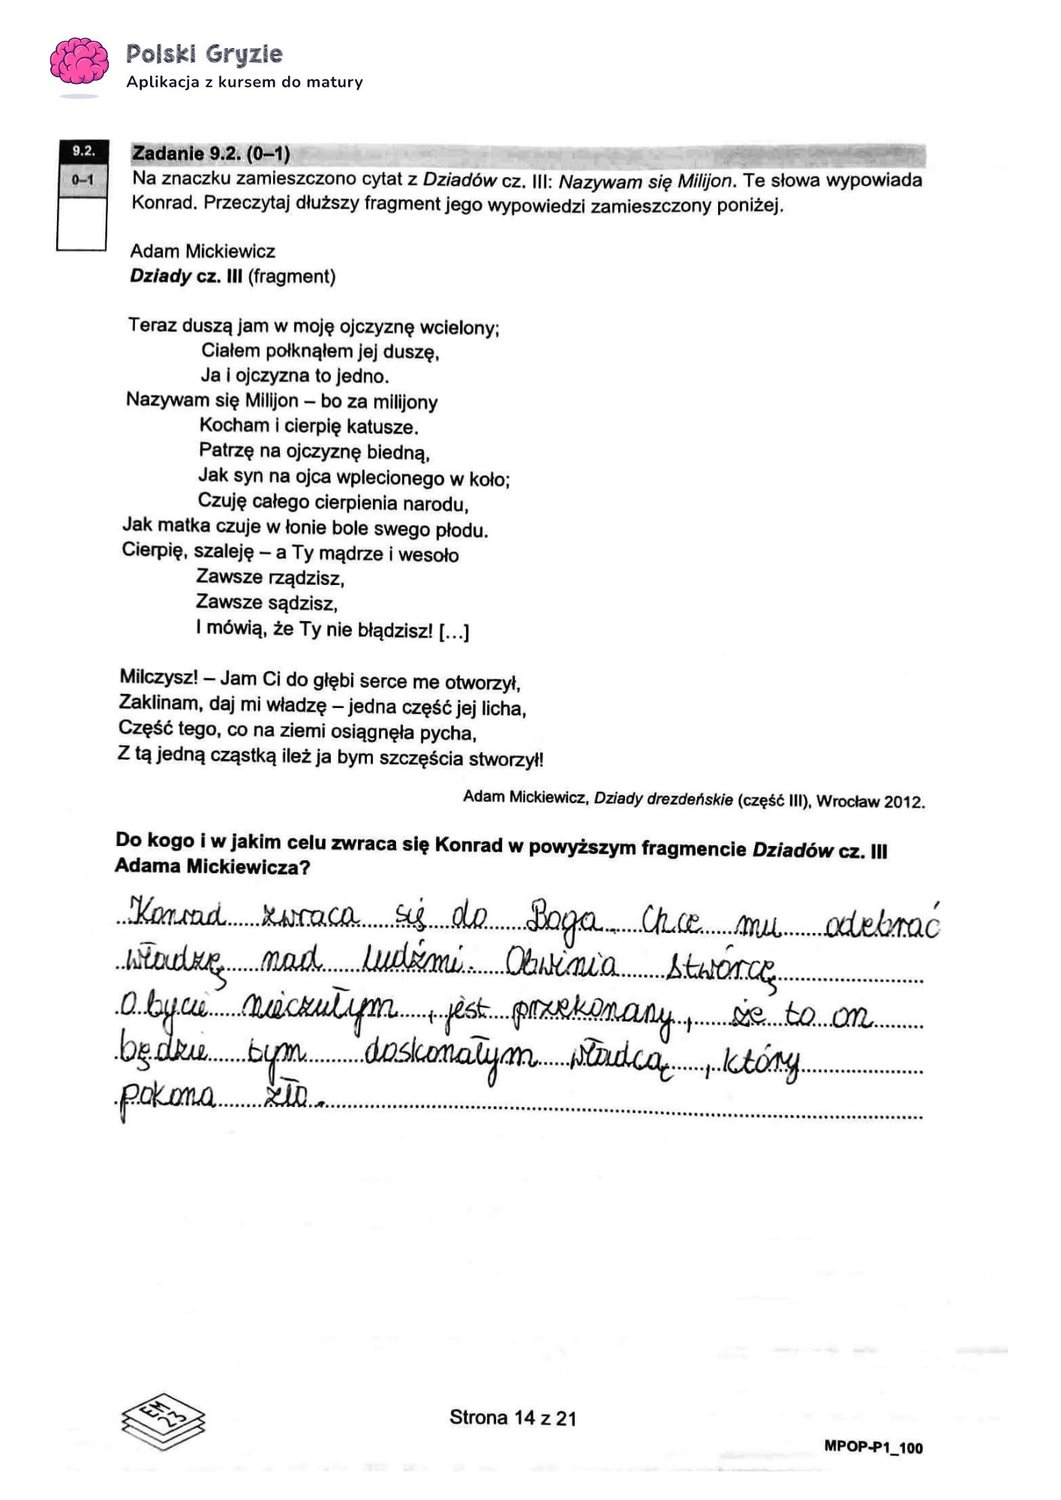 Polski Gryzie
Aplikacja z kursem do matury
9.2.
0–1
Zadanie 9.2. (0–1)
Na znaczku zamieszczono cytat z Dziadów cz. III: Nazywam się Milijon. Te słowa wypowiada
Konrad. Przeczytaj dłuższy fragment jego wypowiedzi zamieszczony poniżej.
Adam Mickiewicz
Dziady cz. III (fragment)
Teraz duszą jam w moję ojczyznę wcielony;
Ciałem połknąłem jej duszę,
Ja i ojczyzna to jedno.
Nazywam się Milijon – bo za milijony
Kocham i cierpię katusze.
Patrzę na ojczyznę biedną,
Jak syn na ojca wplecionego w koło;
Czuję całego cierpienia narodu,
Jak matka czuje w łonie bole swego płodu.
Cierpię, szaleję – a Ty mądrze i wesoło
Zawsze rządzisz,
Zawsze sądzisz,
I mówią, że Ty nie błądzisz! [...]
Milczysz! – Jam Ci do głębi serce me otworzył,
Zaklinam, daj mi władzę – jedna część jej licha,
Część tego, co na ziemi osiągnęła pycha,
Z tą jedną cząstką ileż ja bym szczęścia stworzył!
Adam Mickiewicz, Dziady drezdeńskie (część III), Wrocław 2012.
Do kogo i w jakim celu zwraca się Konrad w powyższym fragmencie Dziadów cz. III
Adama Mickiewicza?
Konrad zwraca się do Boga. Chce mu odebrać
władzę nad ludźmi. Obwinia Stwórcę
o bycie nieczułym, jest przekonany, że to on
będzie tym doskonałym władcą, który
pokona zło.
EM
23
Strona 14 z 21
MPOP-P1_100